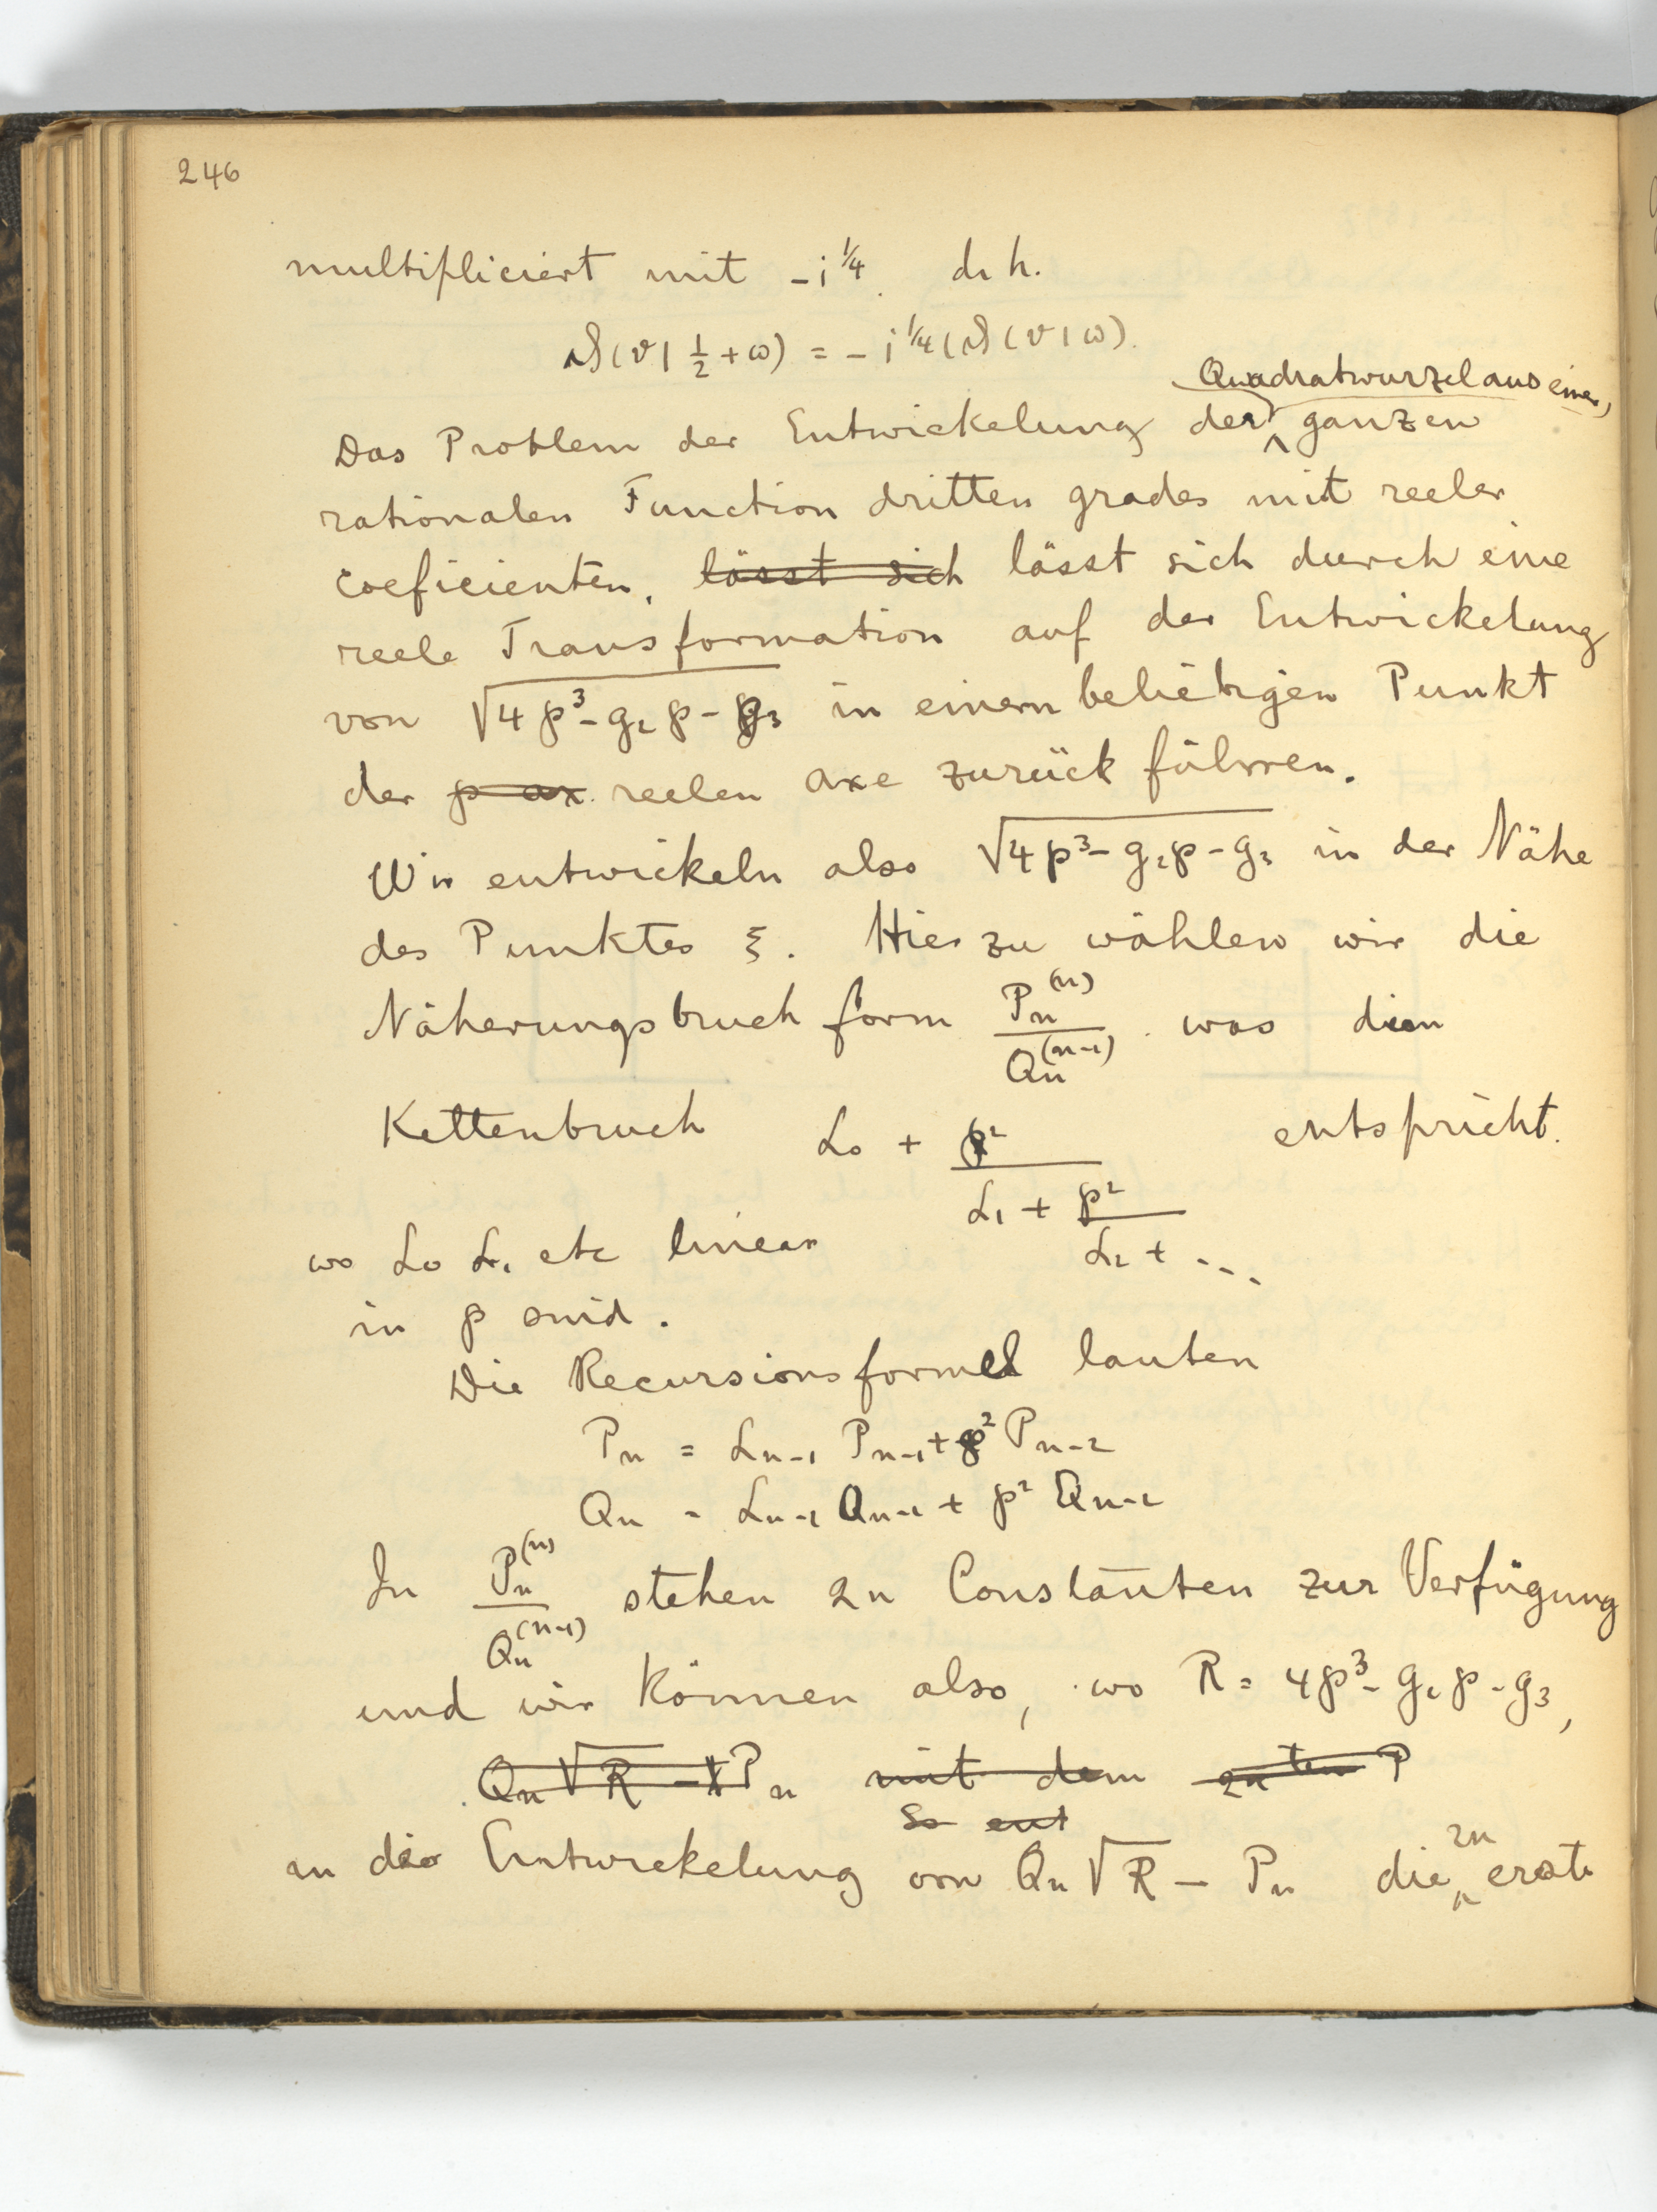 246
multipliciert mit -i^¼. d. h.
ϑ(v | ½ + ω) = - i^¼ (ϑ(v | ω).
Quadratwurzel aus einer
Das Problem der Entwickelung der ganzen
rationalen Function dritten grades mit reeler
Coeficienten, lässt sich lässt sich durch eine
reele Transformation auf der Entwickelung
von √(4p³ - g₂p - g₃) in einem beliebigen Punkt
der p ax. reelen Axe zurück führen.
Wir entwickeln also √(4p³ - g₂p - g₃) in der Nähe
des Punktes ξ. Hier zu wählen wir die
Näherungsbruch form Pₙ⁽ⁿ⁾ / Qₙ⁽ⁿ⁻¹⁾ was dem
Kettenbruch L₀ + p² / L₁ + p² / L₂ + ... entspricht.
wo L₀ L₁ etc linear
in p sind.
Die Recursionsformel lauten
Pₙ = Lₙ₋₁ Pₙ₋₁ + p² Pₙ₋₂
Qₙ = Lₙ₋₁ Qₙ₋₁ + p² Qₙ₋₂
In Pₙ⁽ⁿ⁾ / Qₙ⁽ⁿ⁻¹⁾ stehen 2n Constanten zur Verfügung
und wir können also, wo R = 4p³ - g₂p - g₃,
Qₙ √R - Pₙ mit dem 2n ten P
so ent
in die Entwickelung von Qₙ √R - Pₙ die 2n erste